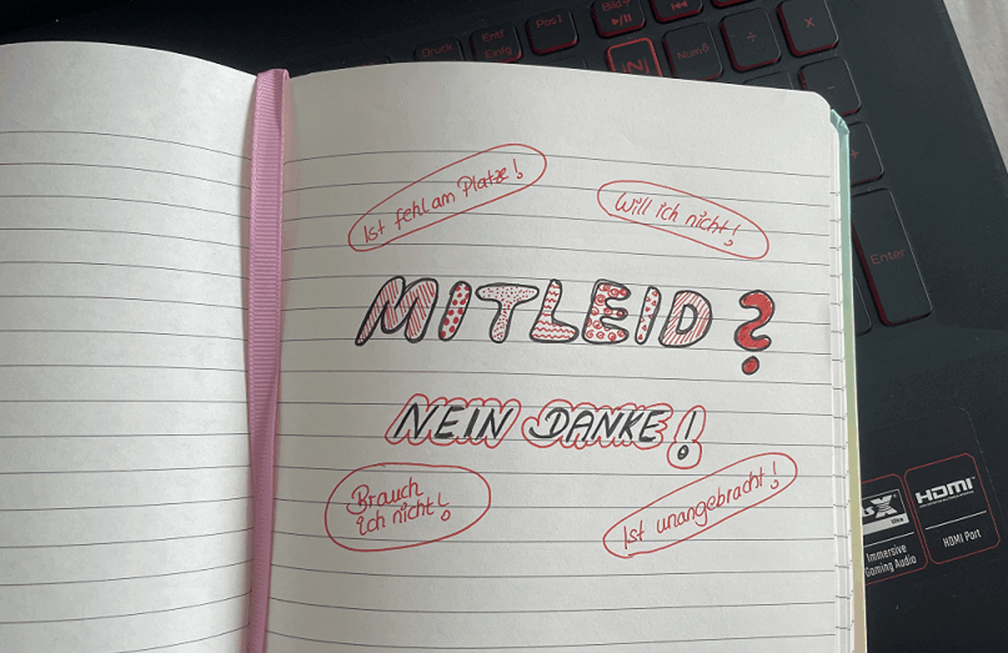 Druck
Entf
Einfg
Pos1
Bild
Num
Enter
Ist fehl am Platze!
Will ich nicht!
MITLEID?
NEIN DANKE!
Brauch
ich nicht!
Ist unangebracht!
X
Ultra
Immersive
Gaming Audio
HDMI
HDMI Port